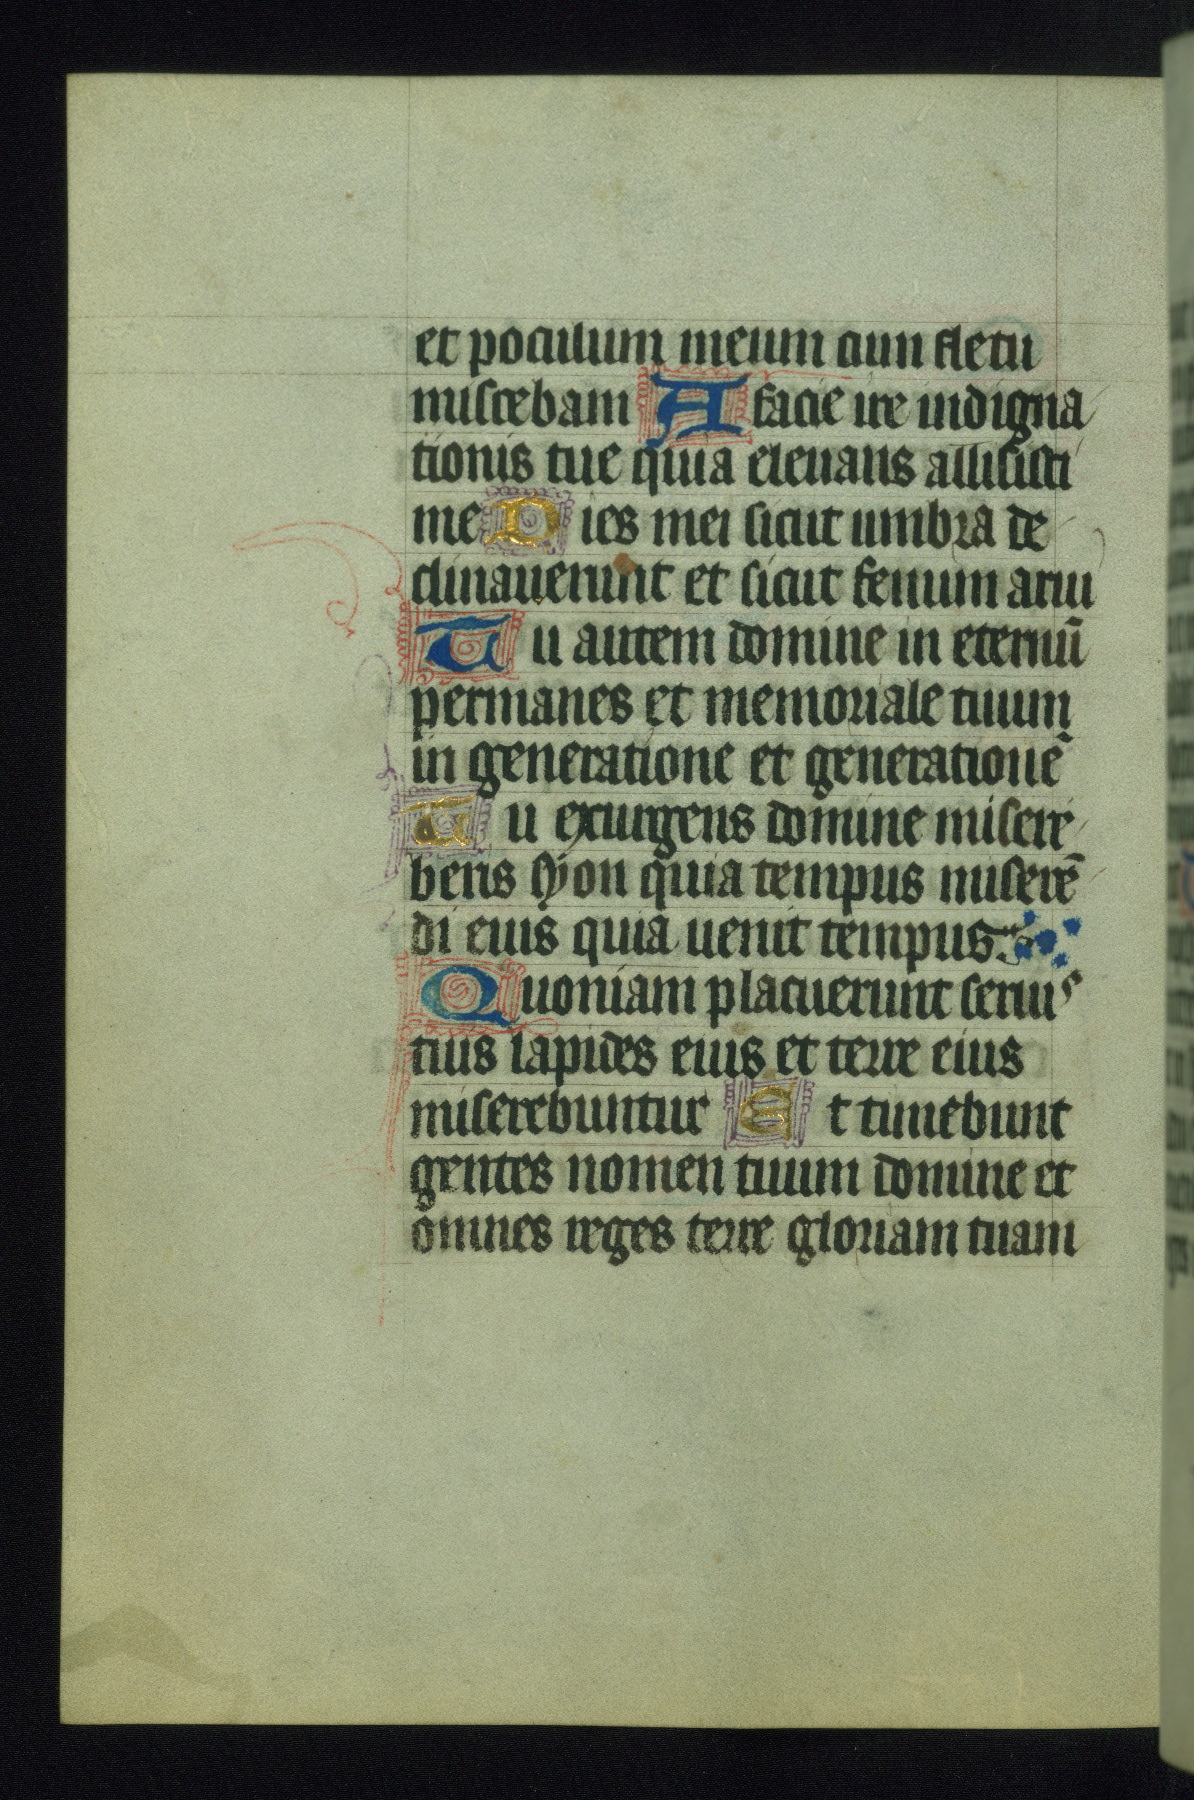 et poculum meum cum fletu
miscebam A facie ire indigna
tionis tue quia eleuans allisisti
me Dies mei sicut umbra de
clinauerunt et sicut fenum arui
Tu autem domine in eternū
permanes et memoriale tuum
in generatione et generationē
Tu exurgens domine misere
beris syon quia tempus miserē
di eius quia uenit tempus.
Quoniam placuerunt seruis
tuis lapides eius et terre eius
miserebuntur Et timebunt
gentes nomen tuum domine et
omnes reges terre gloriam tuam